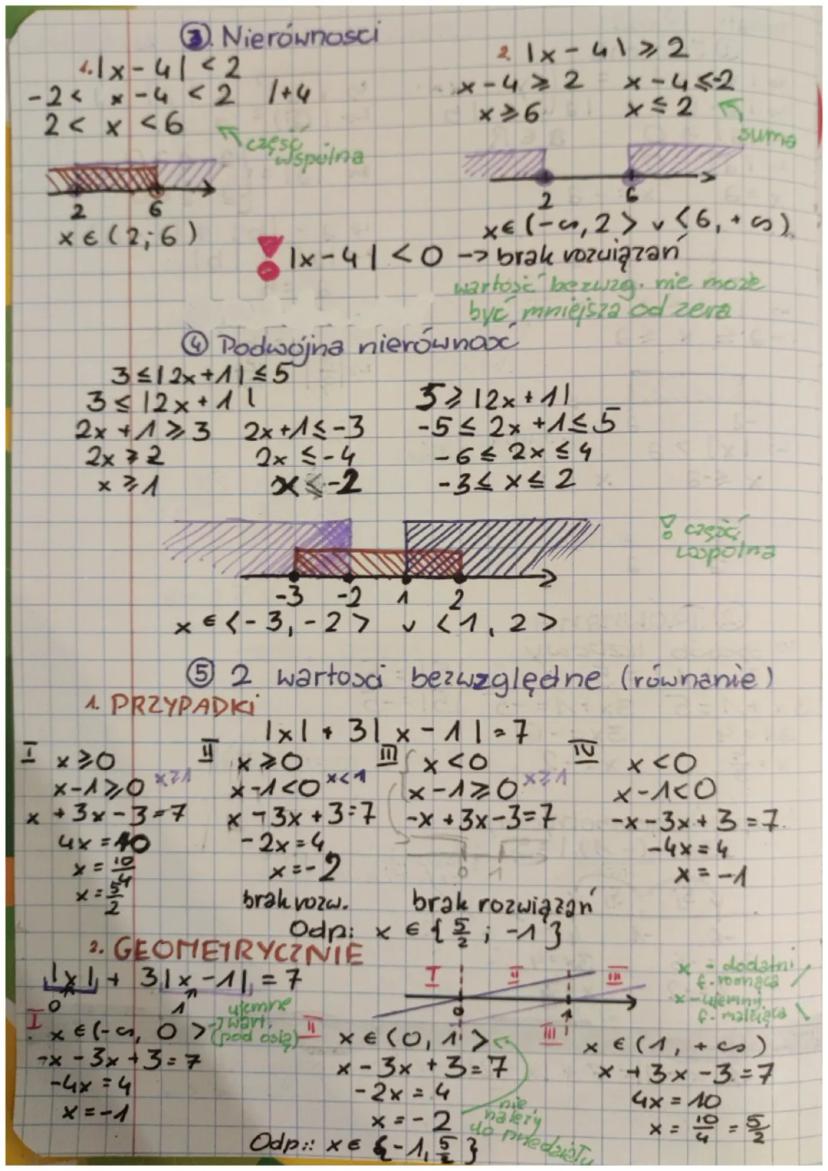 ③ Nierówności
1. |x-4| < 2
-2 < x-4 < 2 /+4
2 < x < 6
część wspólna
2 6
x ∈ (2;6)
2. |x-4| ≥ 2
x-4 ≥ 2 x-4 ≤ -2
x ≥ 6 x ≤ 2
suma
2 6
x ∈ (-∞, 2> ∨ <6, +∞)
! |x-4| < 0 -> brak rozwiązań
wartość bezwzg. nie może
być mniejsza od zera
④ Podwójna nierówność
3 ≤ |2x+1| ≤ 5
3 ≤ |2x+1|
2x+1 ≥ 3 2x+1 ≤ -3
2x ≥ 2 2x ≤ -4
x ≥ 1 x ≤ -2
5 ≥ |2x+1|
-5 ≤ 2x+1 ≤ 5
-6 ≤ 2x ≤ 4
-3 ≤ x ≤ 2
! część
wspólna
-3 -2 1 2
x ∈ <-3, -2> ∨ <1, 2>
⑤ 2 wartości bezwzględne (równanie)
1. PRZYPADKI
|x| + 3|x-1| = 7
I x ≥ 0
x-1 ≥ 0 x ≥ 1
x + 3x - 3 = 7
4x = 10
x = 10/4
x = 5/2
II x ≥ 0
x-1 < 0 x < 1
x - 3x + 3 = 7
-2x = 4
x = -2
brak rozw.
III x < 0
x-1 ≥ 0 x ≥ 1
-x + 3x - 3 = 7
0 1
brak rozwiązań
IV x < 0
x-1 < 0
-x - 3x + 3 = 7
-4x = 4
x = -1
Odp: x ∈ {5/2 ; -1}
2. GEOMETRYCZNIE
|x| + 3|x-1| = 7
0 1
ujemne
wart.
(pod osią)
I II III
0 1
x - dodatni
f. rosnąca /
x - ujemny
f. malejąca \
I x ∈ (-∞, 0>
-x - 3x + 3 = 7
-4x = 4
x = -1
II x ∈ (0, 1>
x - 3x + 3 = 7
-2x = 4
x = -2
nie
należy
do przedziału
III x ∈ (1, +∞)
x + 3x - 3 = 7
4x = 10
x = 10/4 = 5/2
Odp:: x ∈ {-1, 5/2}